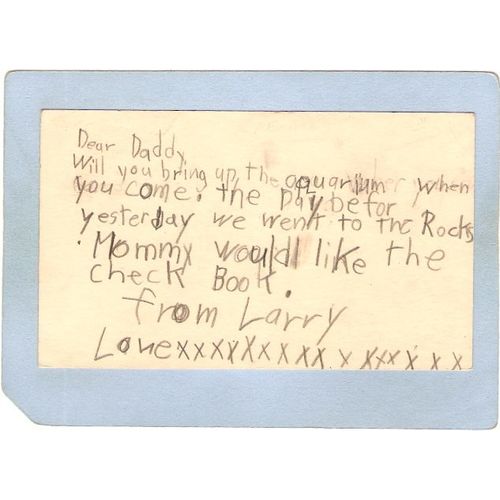 Dear Daddy
Will you bring up, the aquarium when
you come. the Day befor
yesterday we went to the Rocks
Mommy would like the
check Book.
from Larry
Love xxxxxxxxxx x xxxx x x